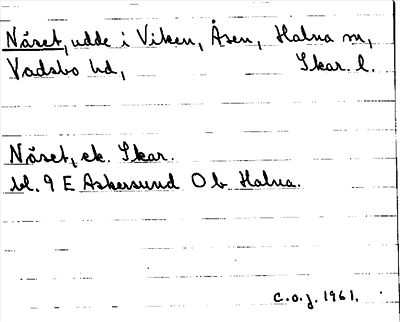 Näset, udde i Viken, Åsen, Halna sn,
Vadsbo hd, Skar. l.
Näset, ek. Skar.
bl. 9 E Askersund O b Halna.
C.O.J. 1961.